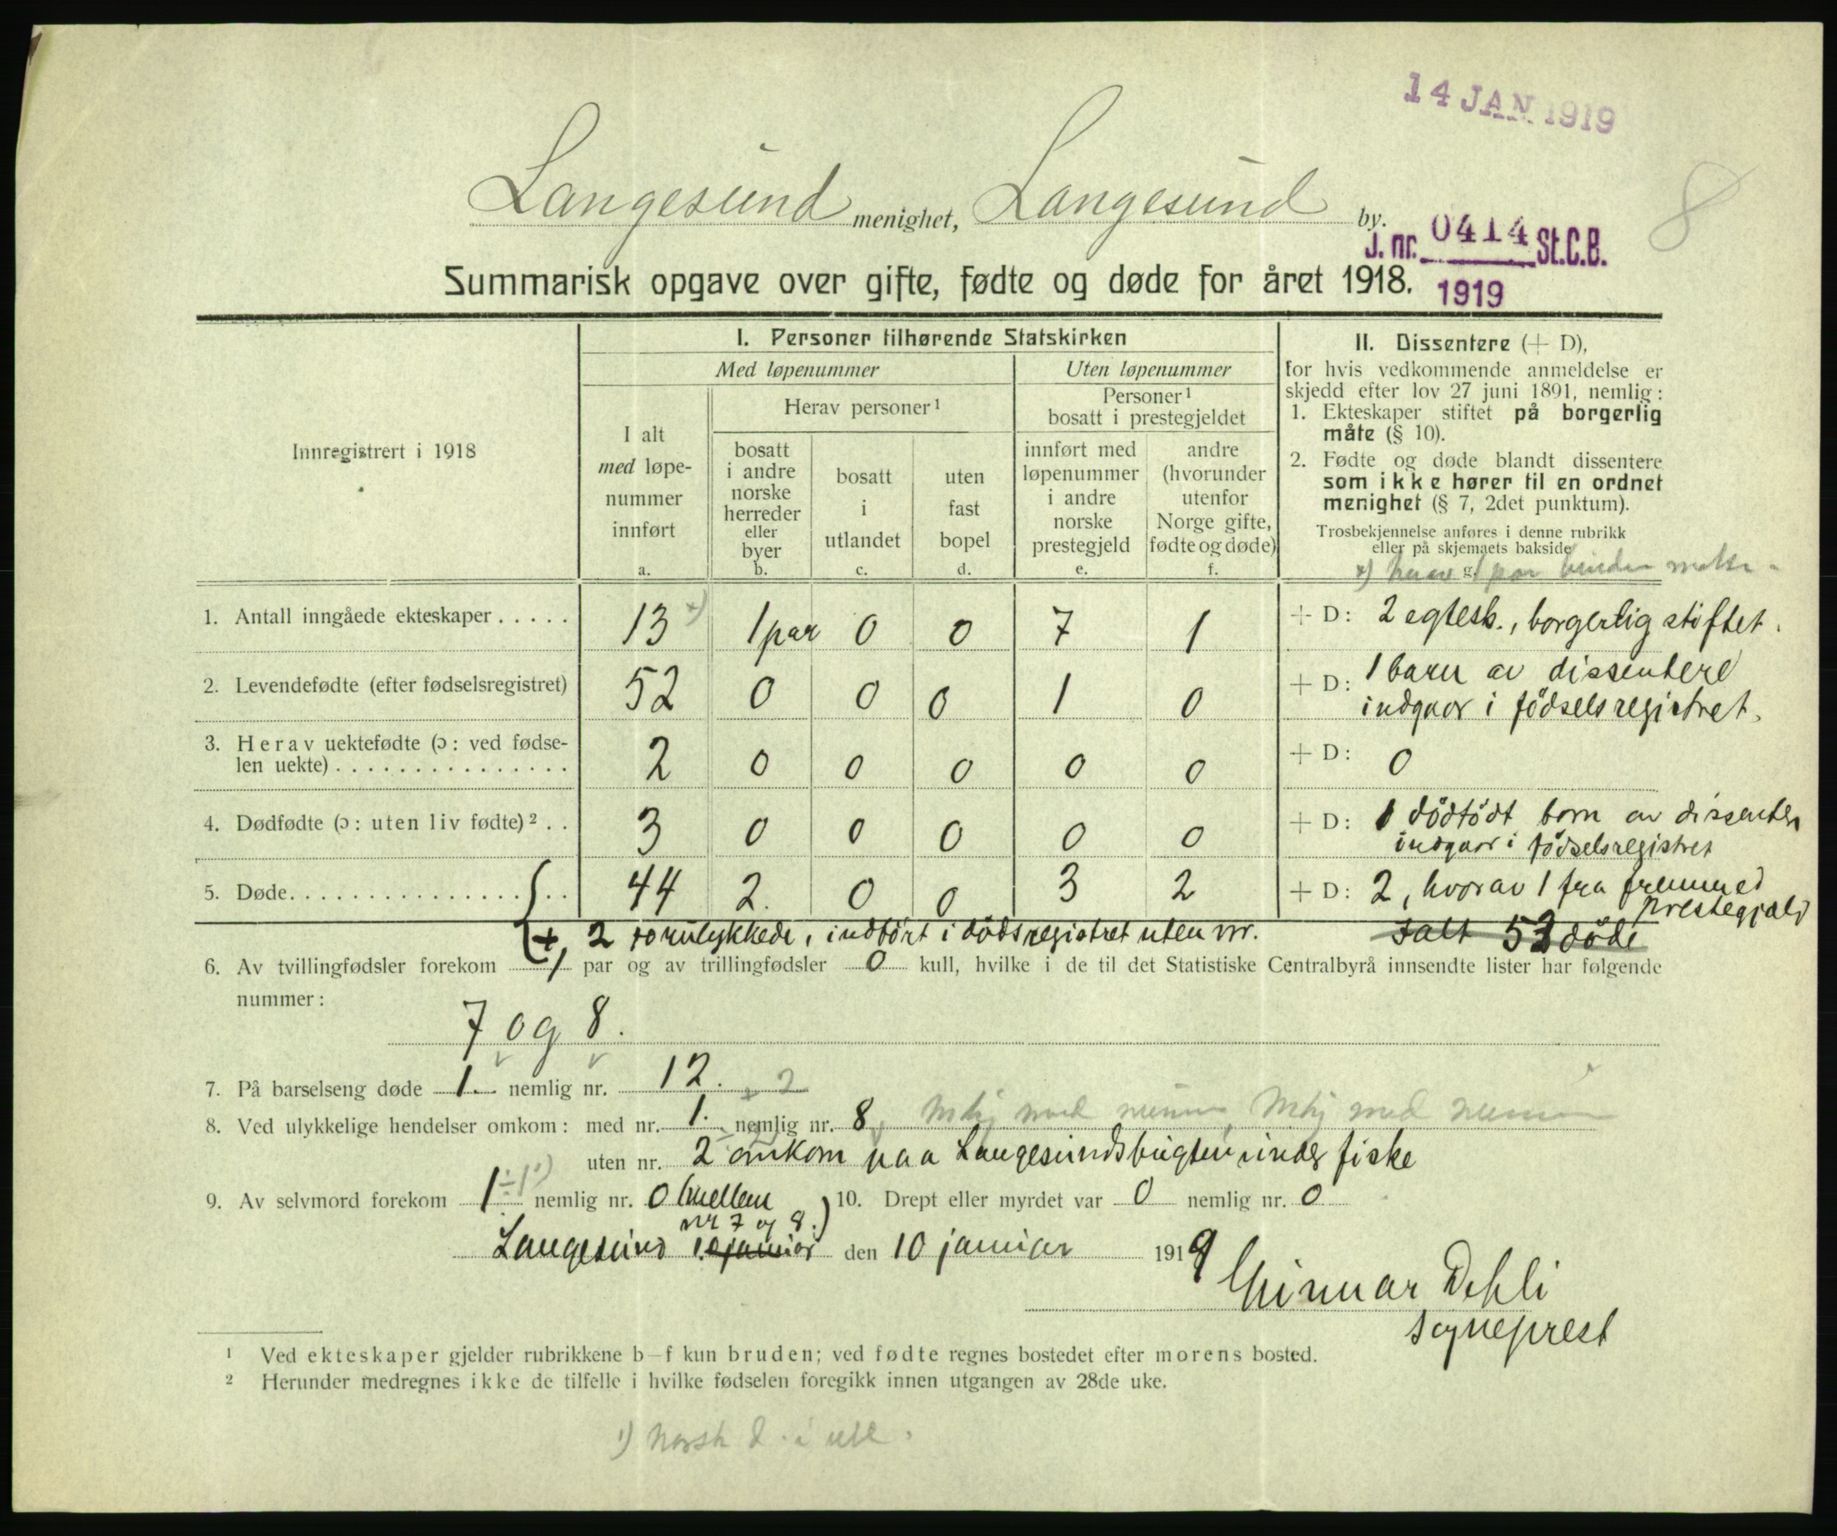 14 JAN 1919
8
Langesund menighet, Langesund by.
J. nr. 0414 St.C.B.
1919
Summarisk opgave over gifte, fødte og døde for året 1918.
Innregistrert i 1918
I. Personer tilhørende Statskirken
Med løpenummer
Uten løpenummer
Herav personer ¹
Personer ¹
bosatt i prestegjeldet
I alt
med løpe-
nummer
innført
a.
bosatt
i andre
norske
herreder
eller
byer
b.
bosatt
i
utlandet
c.
uten
fast
bopel
d.
innført med
løpenummer
i andre
norske
prestegjeld
e.
andre
(hvorunder
utenfor
Norge gifte,
fødte og døde)
f.
II. Dissentere (+ D),
for hvis vedkommende anmeldelse er
skjedd efter lov 27 juni 1891, nemlig:
1. Ekteskaper stiftet på borgerlig
måte (§ 10).
2. Fødte og døde blandt dissentere
som ikke hører til en ordnet
menighet (§ 7, 2det punktum).
Trosbekjennelse anføres i denne rubrikk
eller på skjemaets bakside
g.
1. Antall inngåede ekteskaper . . . . . 13 x) 1 par 0 0 7 1 + D: 2 egtesk., borgerlig stiftet.
2. Levendefødte (efter fødselsregistret) 52 0 0 0 1 0 + D: 1 barn av dissentere
indgaar i födselsregistret.
3. Herav uektefødte (ɔ: ved fødse-
len uekte) . . . . . . . . . . . . . . . 2 0 0 0 0 0 + D: 0
4. Dødfødte (ɔ: uten liv fødte) ² . . 3 0 0 0 0 0 + D: 1 dödfödt barn av dissenter
indgaar i födselsregistret
5. Døde. . . . . . . . . . . . . . . . . . . 44 2. 0 0 3 2 + D: 2, hvorav 1 fra fremmed
prestegjeld
+ 2 forulykkede, indfört i dödsregistret uten nr.
Ialt 53 döde
6. Av tvillingfødsler forekom 1 par og av trillingfødsler 0 kull, hvilke i de til det Statistiske Centralbyrå innsendte lister har følgende
nummer:
7 og 8.
7. På barselseng døde 1. nemlig nr. 12.
+ 2
8. Ved ulykkelige hendelser omkom: med nr. 1. nemlig nr. 8,
uten nr. 2 omkom paa Langesundsbugten under fiske
9. Av selvmord forekom 1 ÷ 1 ¹) nemlig nr. 0 (mellem
nr 7 og 8.)
10. Drept eller myrdet var 0 nemlig nr. 0
Langesund 10 januar den 10 januar 1919
Gunnar Dehli
sogneprest
¹ Ved ekteskaper gjelder rubrikkene b—f kun bruden; ved fødte regnes bostedet efter morens bosted.
² Herunder medregnes ikke de tilfelle i hvilke fødselen foregikk innen utgangen av 28de uke.
¹) Norsk d. i utl.